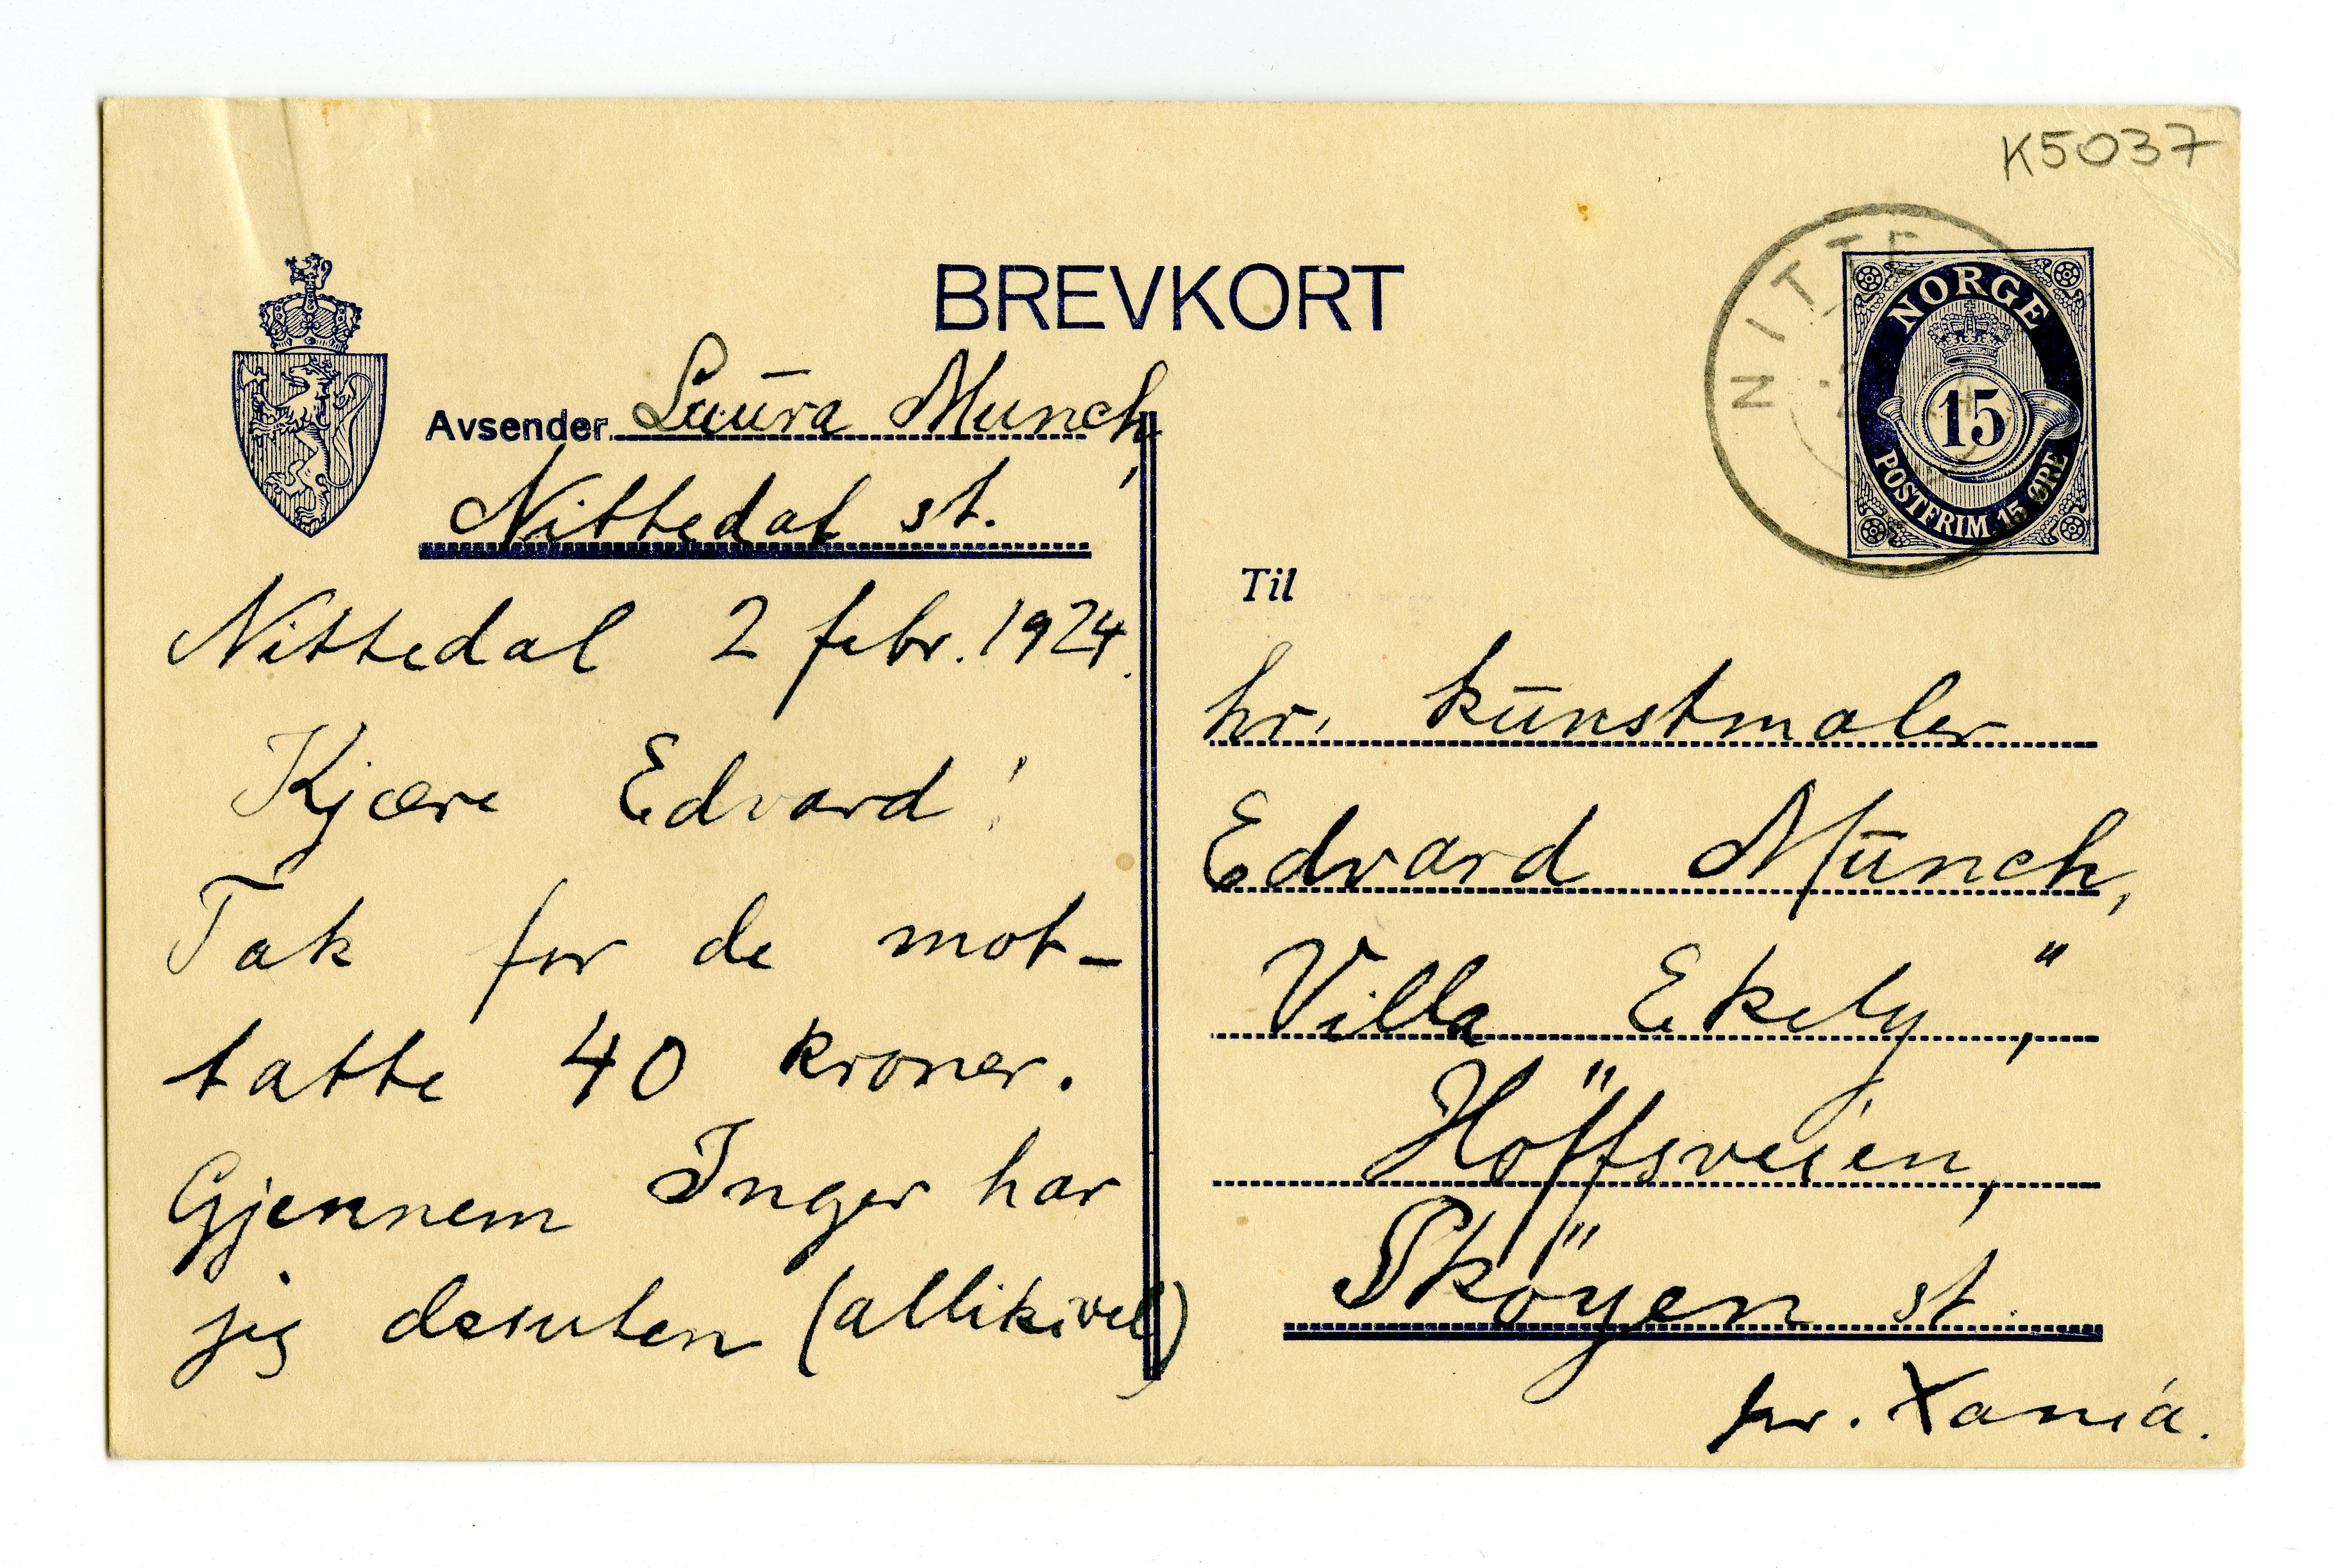 K5037
BREVKORT
NITTE
NORGE
15
POSTFRIM. 15 ØRE
Avsender Laūra Munch,
Nittedal st.
Nittedal 2 febr. 1924.
Kjære Edvard!
Tak for de mot-
tatte 40 kroner.
Gjennem Inger har
jeg desuten (allikevel)
Til
hr. kūnstmaler
Edvard Mūnch,
Villa Ekely",
Höffsveien,
Sköyen st.
pr. Xania.